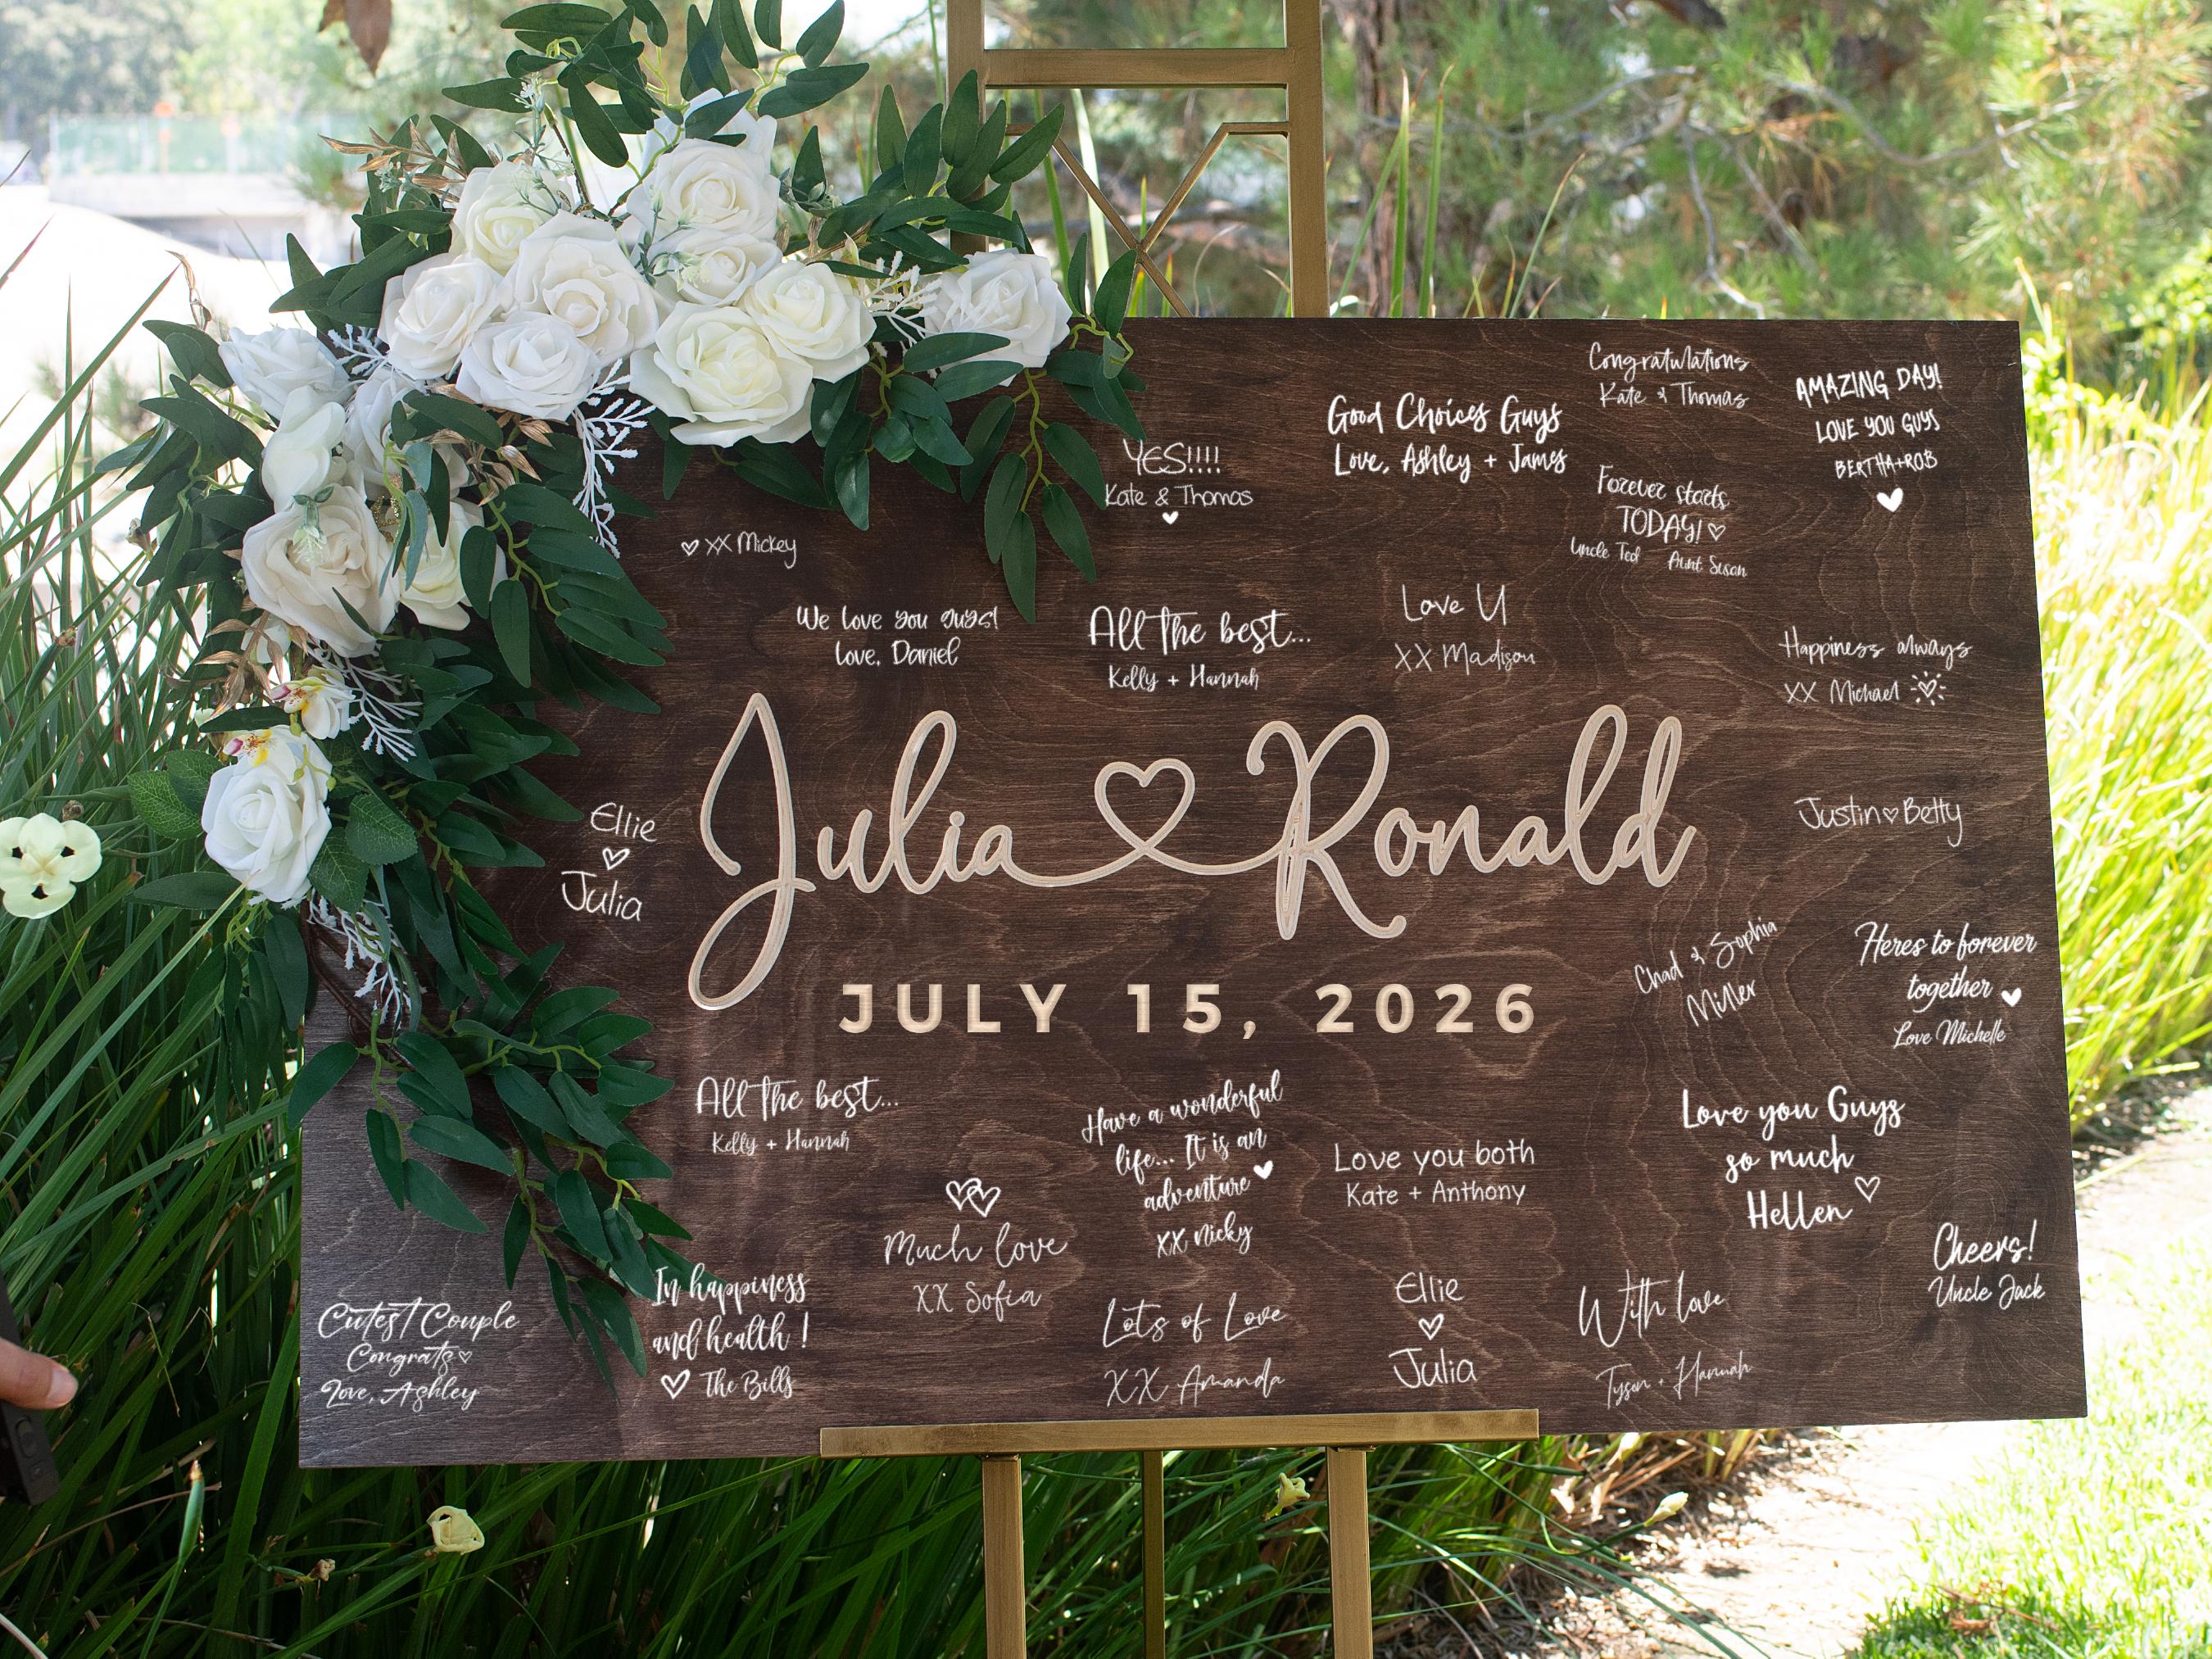 Congratulations
Kate & Thomas
AMAZING DAY!
LOVE YOU GUYS
BERTHA+ROB
Good Choices Guys
Love, Ashley + James
YES!!!!
Kate & Thomas
Forever starts
TODAY!
Uncle Ted Aunt Susan
XX Mickey
We love you guys!
Love, Daniel
All the best...
Kelly + Hannah
Love U
XX Madison
Happiness always
XX Michael
Julia Ronald
JULY 15, 2026
Ellie
Julia
Justin Betty
Chad & Sophia
Miller
Heres to forever
together
Love Michelle
All the best...
Kelly + Hannah
Have a wonderful
life... It is an
adventure
XX Nicky
Love you both
Kate + Anthony
Love you Guys
so much
Hellen
Much love
XX Sofia
Cheers!
Uncle Jack
In happiness
and health !
The Bills
Cutest Couple
Congrats
Love, Ashley
Lots of Love
XX Amanda
Ellie
Julia
With love
Tyson + Hannah